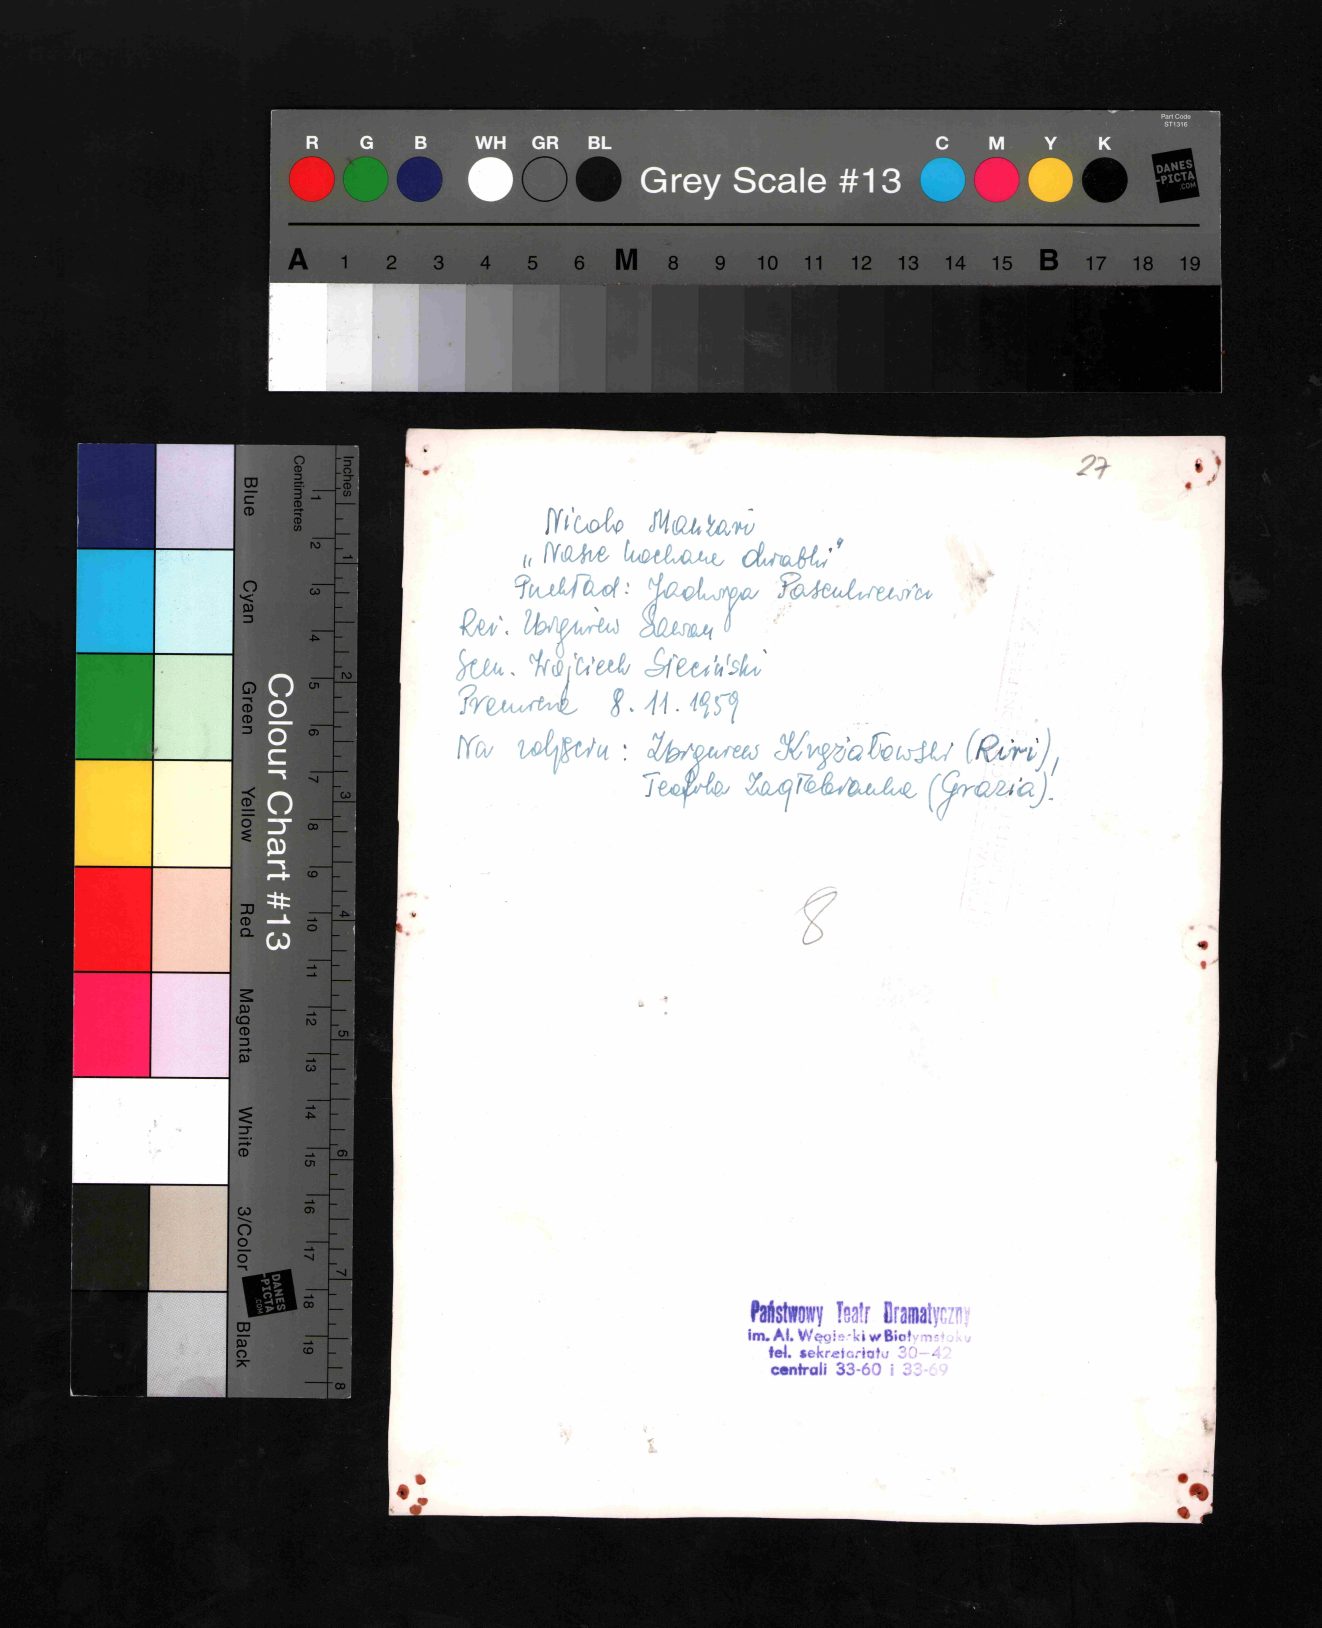 Part Code
ST1316
R G B WH GR BL Grey Scale #13 C M Y K
DANES
-PICTA
.COM
A 1 2 3 4 5 6 M 8 9 10 11 12 13 14 15 B 17 18 19
Colour Chart #13
Blue Cyan Green Yellow Red Magenta White 3/Color Black
Centimetres
1 2 3 4 5 6 7 8 9 10 11 12 13 14 15 16 17 18 19
Inches
1 2 3 4 5 6 7 8
DANES
-PICTA
.COM
27
Nicolo Manzari
„Nasze kochane dziabki"
Przekład: Jadwiga Pasenkiewicz
Reż. Zbigniew Sawan
Scen. Wojciech Sieciński
Premiera 8.11.1959
Na zdjęciu: Zbigniew Krzyżałowski (Riri),
Teofila Zagłobianka (Grazia).
8
Państwowy Teatr Dramatyczny
im. Al. Węgierki w Białymstoku
tel. sekretariatu 30-42
centrali 33-60 i 33-69